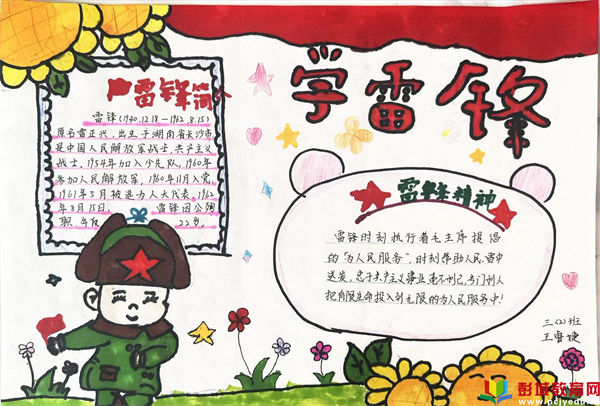 学雷锋
雷锋简介
雷锋(1940.12.18—1962.8.15)
原名雷正兴，出生于湖南省长沙市
是中国人民解放军战士，共产主义
战士，1954年加入少先队，1960年
参加人民解放军，1960年11月入党，
1961年5月被选为人大代表，1962
年8月15日， 雷锋因公殉
职 年仅 22岁。
雷锋精神
雷锋时刻执行着毛主席提倡
的"为人民服务"，时刻帮助人民，雪中
送炭，忠于共产主义事业，毫不利己，专门利人
把有限生命投入到无限的为人民服务中!
三(2)班
王睿婕
彭城教育网
www.pcjyedu.com